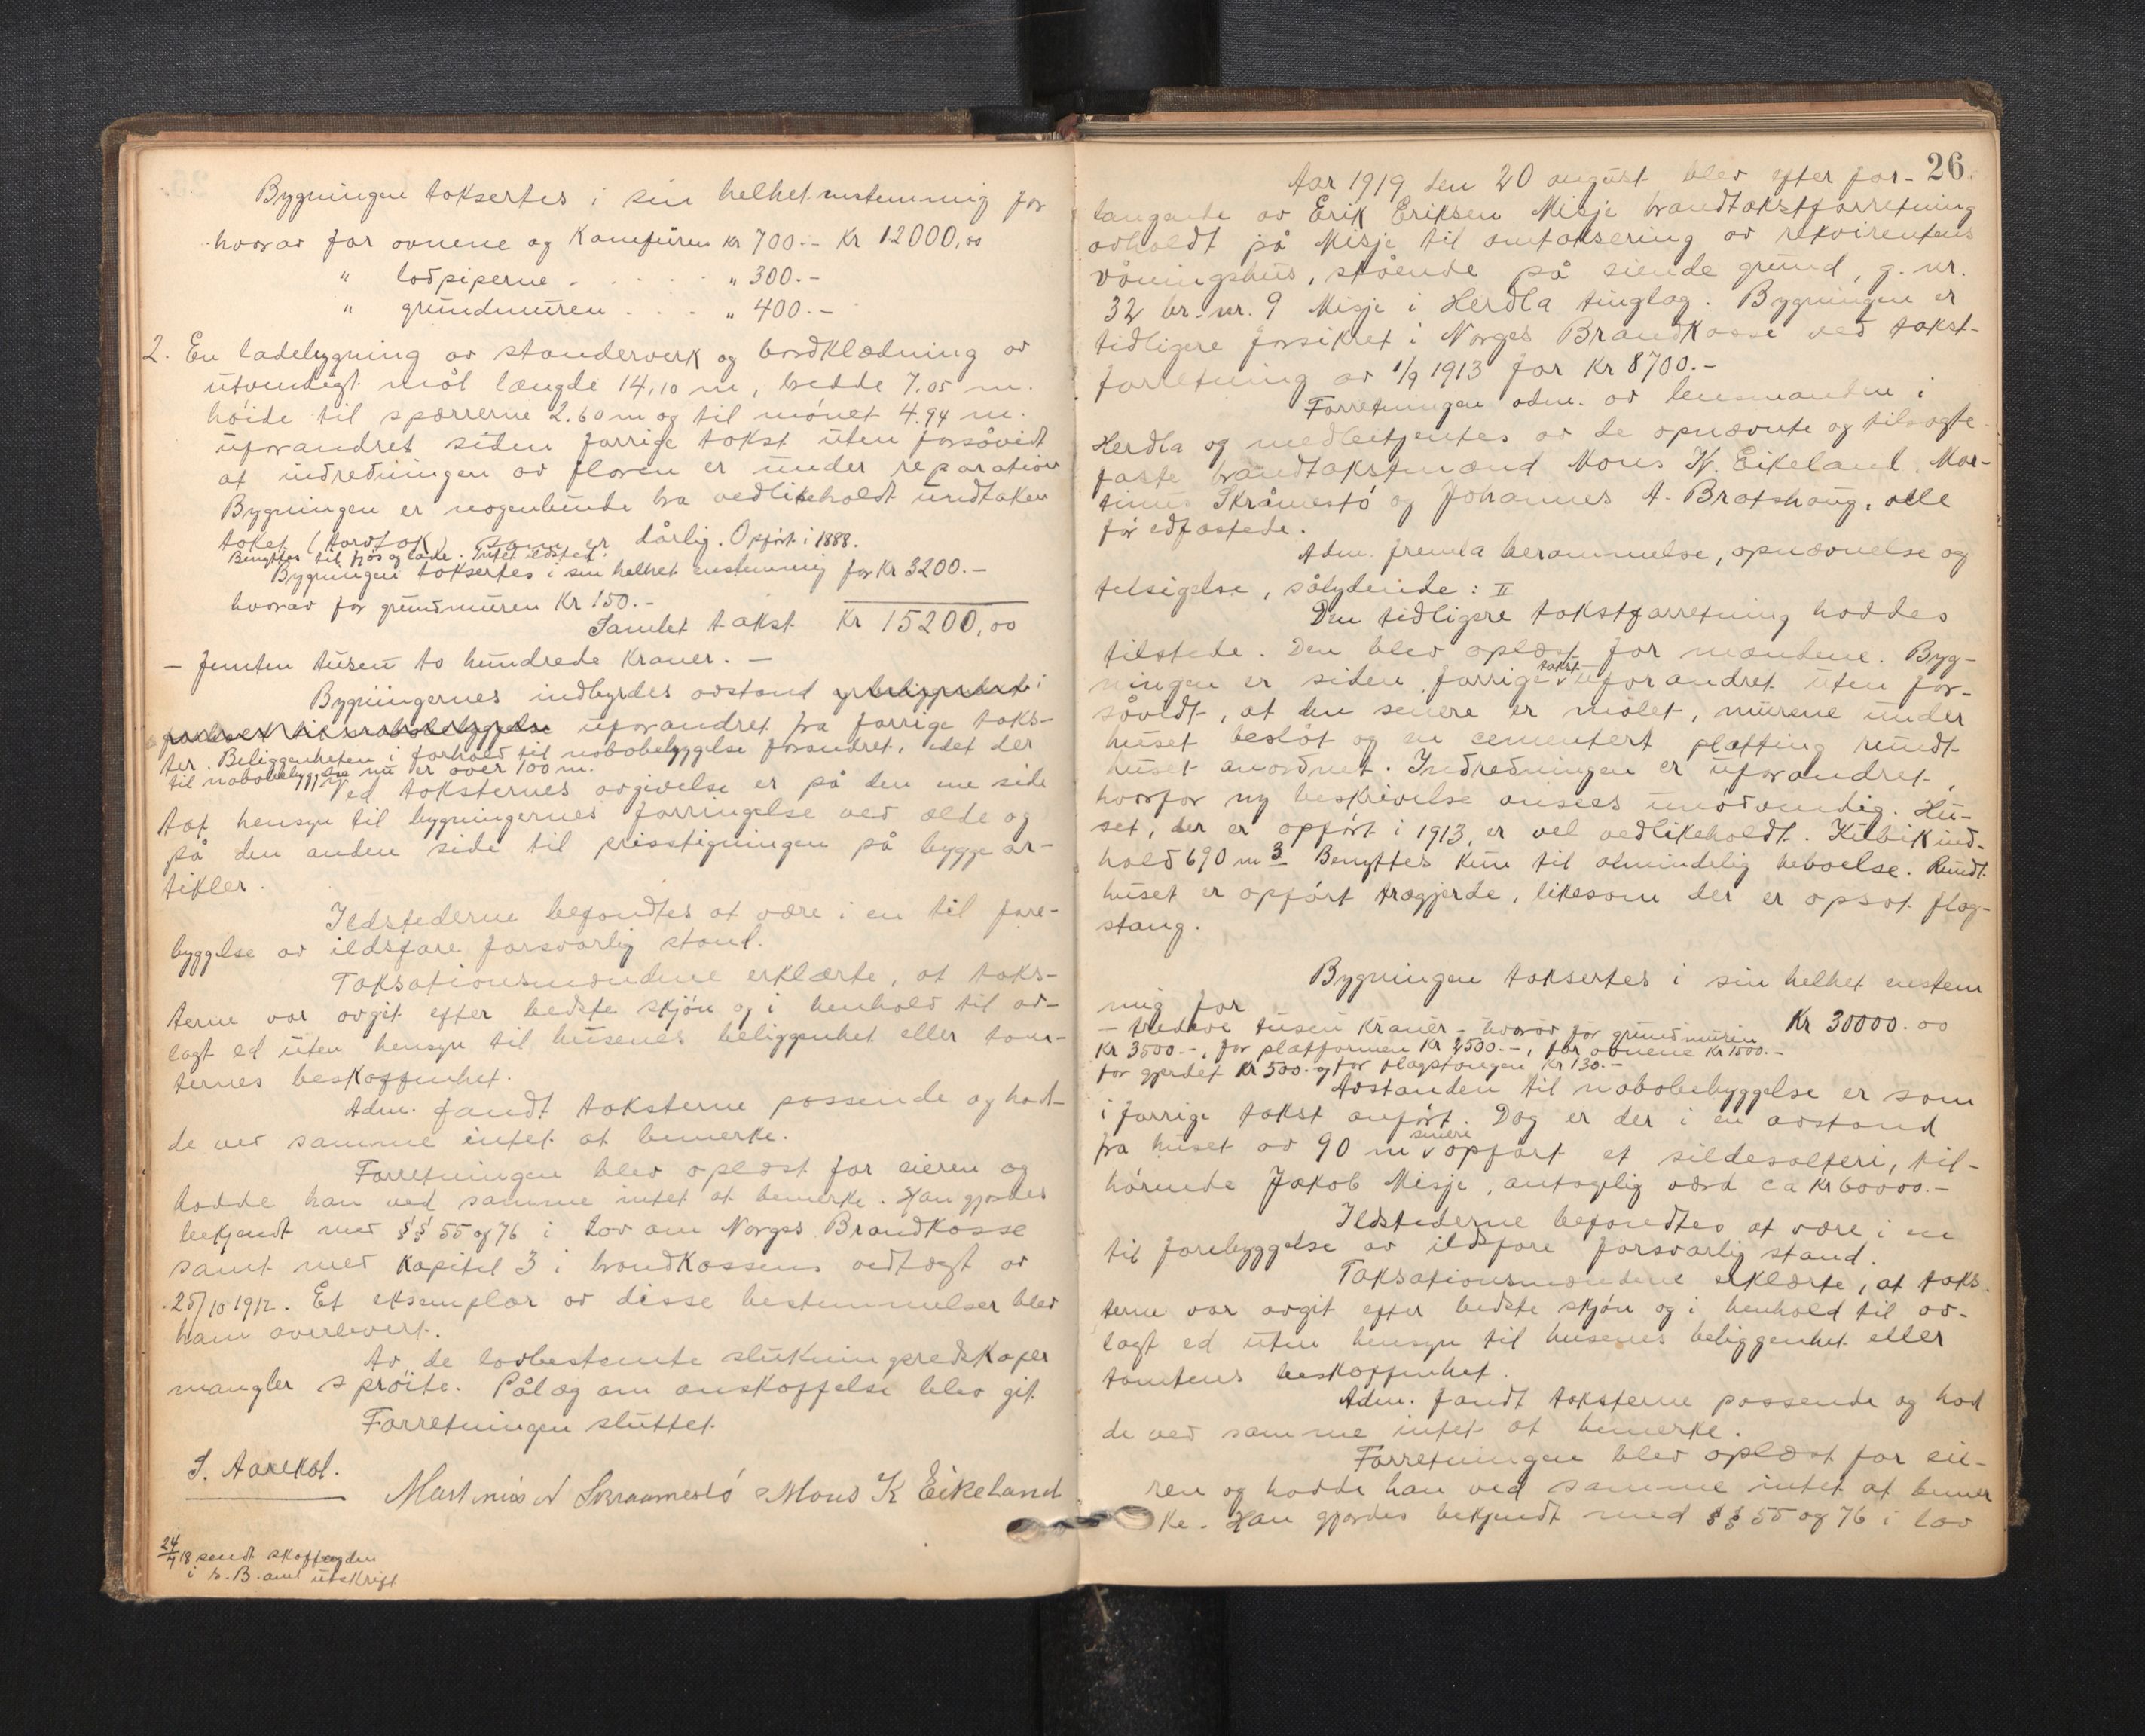 Bygningen taksertes i sin helhet enstemmig for
hvorav for ovnene og Kamfüren kr 700.- Kr 12000,00
" lodpiperne . . . . . " 300.-
" grundmuren . . . " 400.-
2. En ladebygning av stenderverk og bordklædning av
utvendigt mål længde 14,10 m, bredde 7.05 m.
høide til spærrerne 2.60 m og til mønet 4.94 m.
uforandret siden forrige takst uten forsåvidt
at indredningen av floren er under reparation
Bygningen er nogenlunde bra vedlikeholdt undtaken
taket (torvtak) som er dårlig. Opført i 1888.
Benyttes til fjøs og lade. Intet ildsted.
Bygningen taksertes i sin helhet enstemmig for Kr 3200.-
hvorav for grundmuren Kr 150.-
Samlet takst Kr 15200,00
- femten tusen to hundrede Kroner. -
Bygningernes indbyrdes avstand og beliggenhet i
forhold til nabobebyggelse uforandret fra forrige taks-
ter. Beliggenheten i forhold til nabobebyggelse forandret, idet der
til nabobebyggelse nu er over 100 m.
Ved taksternes avgivelse er på den ene side
tat hensyn til bygningernes forringelse ved ælde og
på den anden side til prisstigningen på bygge ar-
tikler.
Ildstederne befandtes at være i en til fore-
byggelse av ildsfare forsvarlig stand.
Taksationsmændene erklærte, at taks-
terne var avgit efter bedste skjøn og i henhold til av-
lagt ed uten hensyn til husenes beliggenhet eller tom-
ternes beskaffenhet.
Adm. fandt taksterne passende og had-
de ved samme intet at bemerke.
Forretningen blev oplæst for eieren og
hadde han ved samme intet at bemerke. Han gjordes
bekjendt med §§ 55 og 76 i Lov om Norges Brandkasse
samt med Kapitel 3 i brandkassens vedtægt av
25/10 1912. Et eksemplar av disse bestemmelser blev
ham overlevert.
Av de lovbestemte slukningsredskaper
mangler sprøite. Pålæg om anskaffelse blev git.
Forretningen sluttet.
S. Aarekol.
Martinius N Skraamestø Mons K Eikeland
24/7 18 sendt skaffogden
i N.B. aml utskrift
26.
Aar 1919 den 20 august blev efter for-
langende av Erik Eriksen Misje brandtakstforretning
avholdt på Misje til omtaksering av rekvirentens
våningshus, stående på eiende grund, g. nr.
32 br. nr. 9 Misje i Herdla tinglag. Bygningen er
tidligere forsikret i Norges Brandkasse ved takst-
forretning av 1/9 1913 for Kr 8700.-
Forretningen adm. av lensmanden i
Herdla og medbetjentes av de opnævnte og tilsagte
faste brandtakstmænd Mons K. Eikeland, Mar-
tinus Skråmestø og Johannes A. Bratshaug, alle
før edfæstede.
Adm. fremla berammelse, opnævnelse og
tilsigelse, sålydende: II
Den tidligere takstforretning haddes
tilstede. Den blev oplæst for mændene. Byg-
ningen er siden forrige takst uforandret uten for-
såvidt, at den senere er målet, murene under
huset beslåt og en cementert platting rundt
huset anordnet. Indredningen er uforandret,
hvorfor ny beskrivelse ansees unødvendig. Hu-
set, der er opført i 1913, er vel vedlikeholdt. Kubik ind-
hold 690 m3 Benyttes kun til almindelig beboelse. Rundt
huset er opført trægjerde, likesom der er opsat flag-
stang.
Bygningen taksertes i sin helhet enstem
mig for
- tredeve tusen Kroner - hvorav for grundmuren Kr 30000.00
Kr 3500.-, for platformen Kr 2500.-, for ovnene Kr 1500.-
for gjerdet Kr 500. og for flagstangen Kr 130.-
Avstanden til nabobebyggelse er som
i forrige takst anført. Dog er der i en avstand
fra huset av 90 m senere opført et sildesalteri, til-
hørende Jakob Misje, antagelig værd ca Kr 60000.-
Ildstederne befandtes at være i en
til forebyggelse av ildsfare forsvarlig stand.
Taksationsmændene erklærte, at taks
terne var avgit efter bedste skjøn og i henhold til av-
lagt ed uten hensyn til husenes beliggenhet eller
tomtens beskaffenhet.
Adm. fandt taksterne passende og had
de ved samme intet at bemerke.
Forretningen blev oplæst for eie-
ren og hadde han ved samme intet at bemer
ke. Han gjordes bekjendt med §§ 55 og 76 i lov